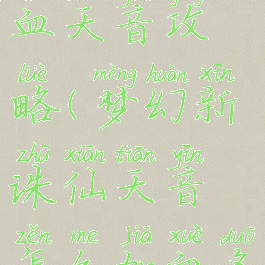 血天音攻
lüè mèng huàn xīn
略(梦幻新
zhū xiān tiān yīn
诛仙天音
zěn me jiā xuè duō
怎么加血多